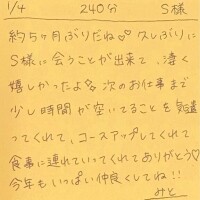 1/4 240分 S様
約5ヶ月ぶりだね♡♡ 久しぶりに
S様に会うことが出来て、凄く
嬉しかったよ♡ 次のお仕事まで
少し時間が空いてることを気遣
ってくれて、コースアップしてくれて
食事に連れていってくれてありがとう♡
今年もいっぱい仲良くしてね!!
みと